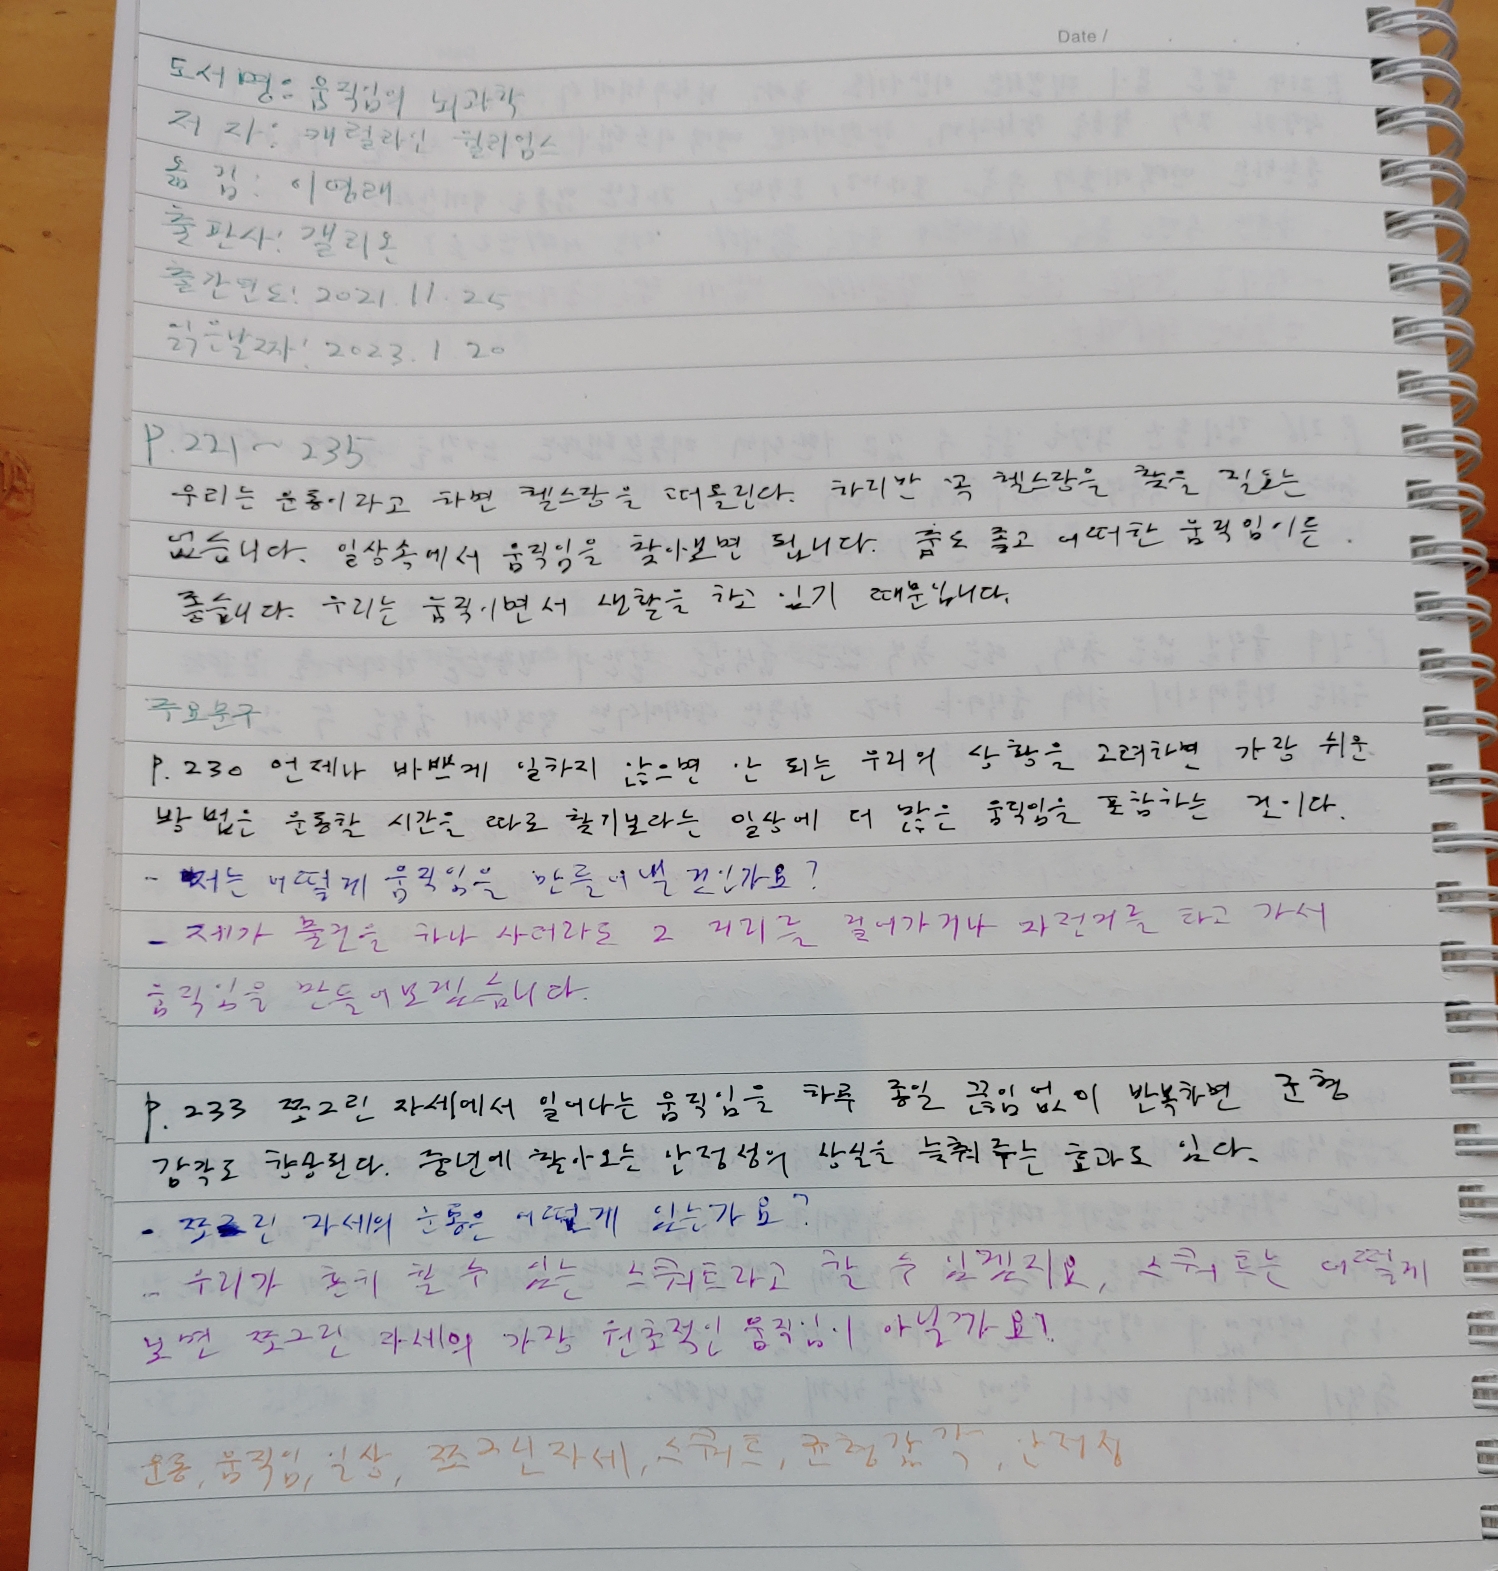 Date /
도서명: 움직임의 뇌과학
저자: 캐럴라인 윌리엄스
옮김: 이영래
출판사: 갤리온
출간연도: 2021.11.25
읽은날짜: 2023.1 20
P.221~235
우리는 운동이라고 하면 헬스장을 떠올린다. 하지만 꼭 헬스장을 찾을 필요는
없습니다. 일상속에서 움직임을 찾아보면 됩니다. 춤도 좋고 어떠한 움직임이든
좋습니다. 우리는 움직이면서 생활을 하고 있기 때문입니다.
주요문구
P. 230 언제나 바쁘게 일하지 않으면 안 되는 우리의 상황을 고려하면 가장 쉬운
방법은 운동할 시간을 따로 찾기보다는 일상에 더 많은 움직임을 포함하는 것이다.
- 저는 어떻게 움직임을 만들어낼 건인가요?
- 제가 물건을 하나 사더라도 그 거리를 걸어가거나 자전거를 타고 가서
움직임을 만들어보겠습니다.
P. 233 쪼그린 자세에서 일어나는 움직임을 하루 종일 끊임없이 반복하면 균형
감각도 향상된다. 중년에 찾아오는 안정성의 상실을 늦춰주는 효과도 있다.
- 쪼그린 자세의 운동은 어떻게 있는가요?
- 우리가 흔히 할 수 있는 스쿼트라고 할 수 있겠지요, 스쿼트는 어떻게
보면 쪼그린 자세의 가장 원초적인 움직임이 아닐까요?
운동, 움직임, 일상, 쪼그린자세, 스쿼트, 균형감각, 안정성